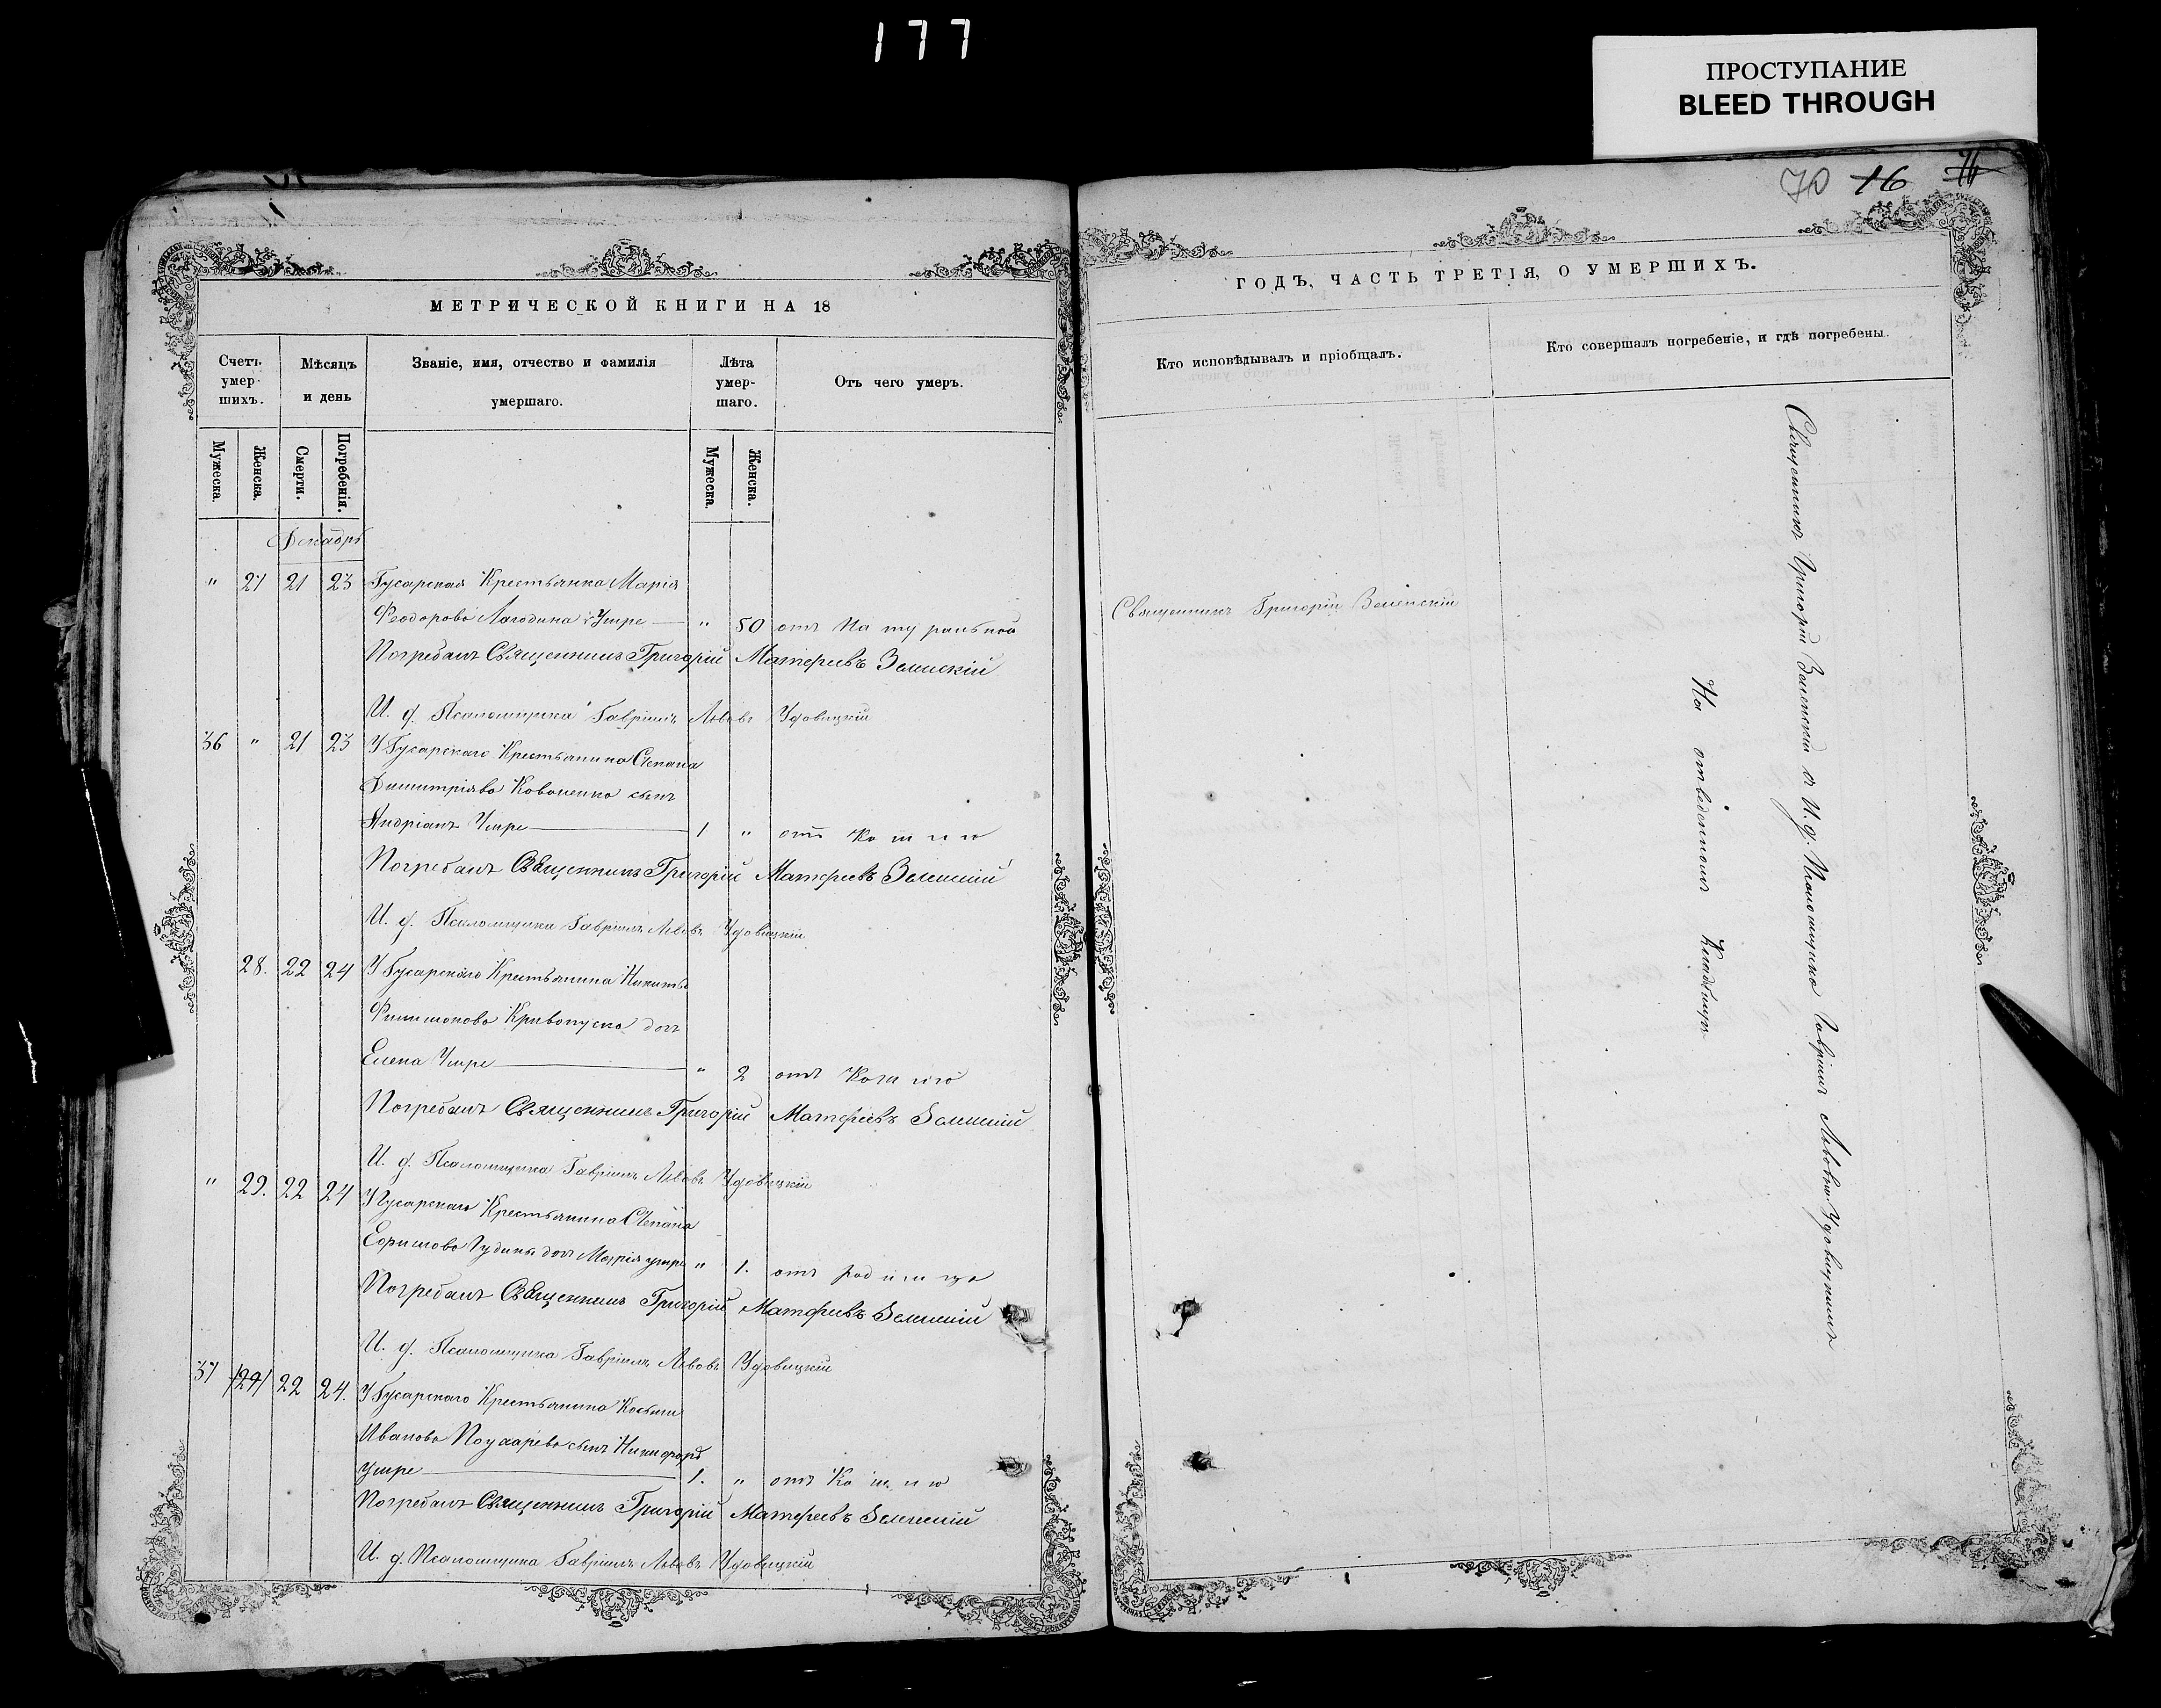 177
ПРОСТУПАНИЕ
BLEED THROUGH
70 16 71
МЕТРИЧЕСКОЙ КНИГИ НА 18
Счетъ умер-шихъ.
Мѣсяцъ и день
Званіе, имя, отчество и фамилія умершаго.
Лѣта умер-шаго.
Отъ чего умеръ.
Мужеска. Женска. Смерти. Погребенія. Мужеска. Женска.
Декабрь
" 27 21 23 Гусарская Крестьянка Марія
Феодорова Лагодина Умре — " 50 отъ Натуральной
Погребалъ Священникъ Григорій Матѳеевъ Зеленскій
И. д. Псаломщика Гавріилъ Львовъ Удовицкій
36 " 21 23 У Гусарскаго Крестьянина Стефана
Димитріева Коваленко сынъ
Андріанъ Умре — 1 " отъ Кашлю
Погребалъ Священникъ Григорій Матѳеевъ Зеленскій
И. д. Псаломщика Гавріилъ Львовъ Удовицкій
28. 22 24 У Гусарскаго Крестьянина Никиты
Филимонова Кривопуска дочь
Елена Умре — " 2 отъ Кашлю
Погребалъ Священникъ Григорій Матѳеевъ Зеленскій
И. д. Псаломщика Гавріилъ Львовъ Удовицкій
" 29. 22 24 У Гусарскаго Крестьянина Стефана
Ефимова Гудины дочь Марія умре " 1. отъ родимца
Погребалъ Священникъ Григорій Матѳеевъ Зеленскій
И. д. Псаломщика Гавріилъ Львовъ Удовицкій
37 22 24. У Гусарскаго Крестьянина Косьмы
Иванова сынъ Никифоръ
Умре — 1. " отъ Кашлю
Погребалъ Священникъ Григорій Матѳеевъ Зеленскій
И. д. Псаломщика Гавріилъ Львовъ Удовицкій
ГОДЪ, ЧАСТЬ ТРЕТІЯ, О УМЕРШИХЪ.
Кто исповѣдывалъ и пріобщалъ.
Кто совершалъ погребеніе, и гдѣ погребены.
Священникъ Григорій Зеленскій
Священникъ Григорій Зеленскій съ И. д. Псаломщика Гавріилъ Львовъ Удовицкимъ
На отведенномъ Кладбищѣ